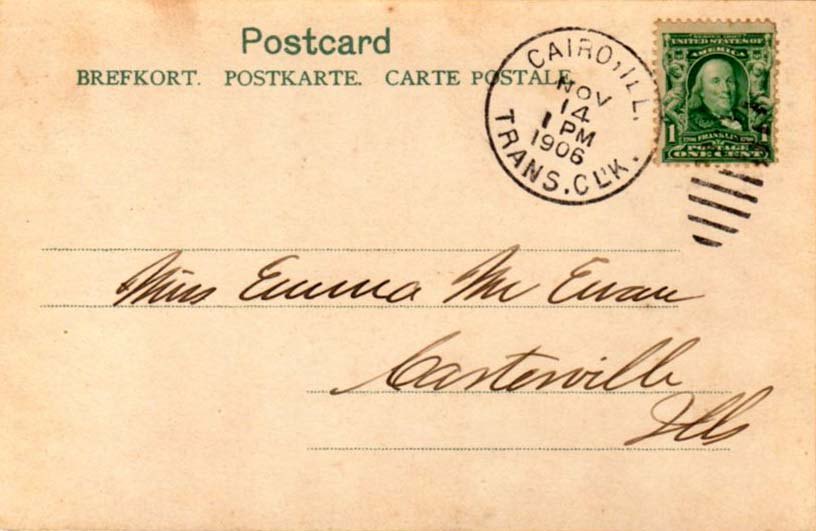 Postcard
BREFKORT. POSTKARTE. CARTE POSTALE.
CAIRO, ILL.
NOV
14
1 PM
1906
TRANS. CLK.
UNITED STATES OF
AMERICA
1 FRANKLIN 1
POSTAGE
ONE CENT
Miss Emma Mc Ewan
Carterville
Ills